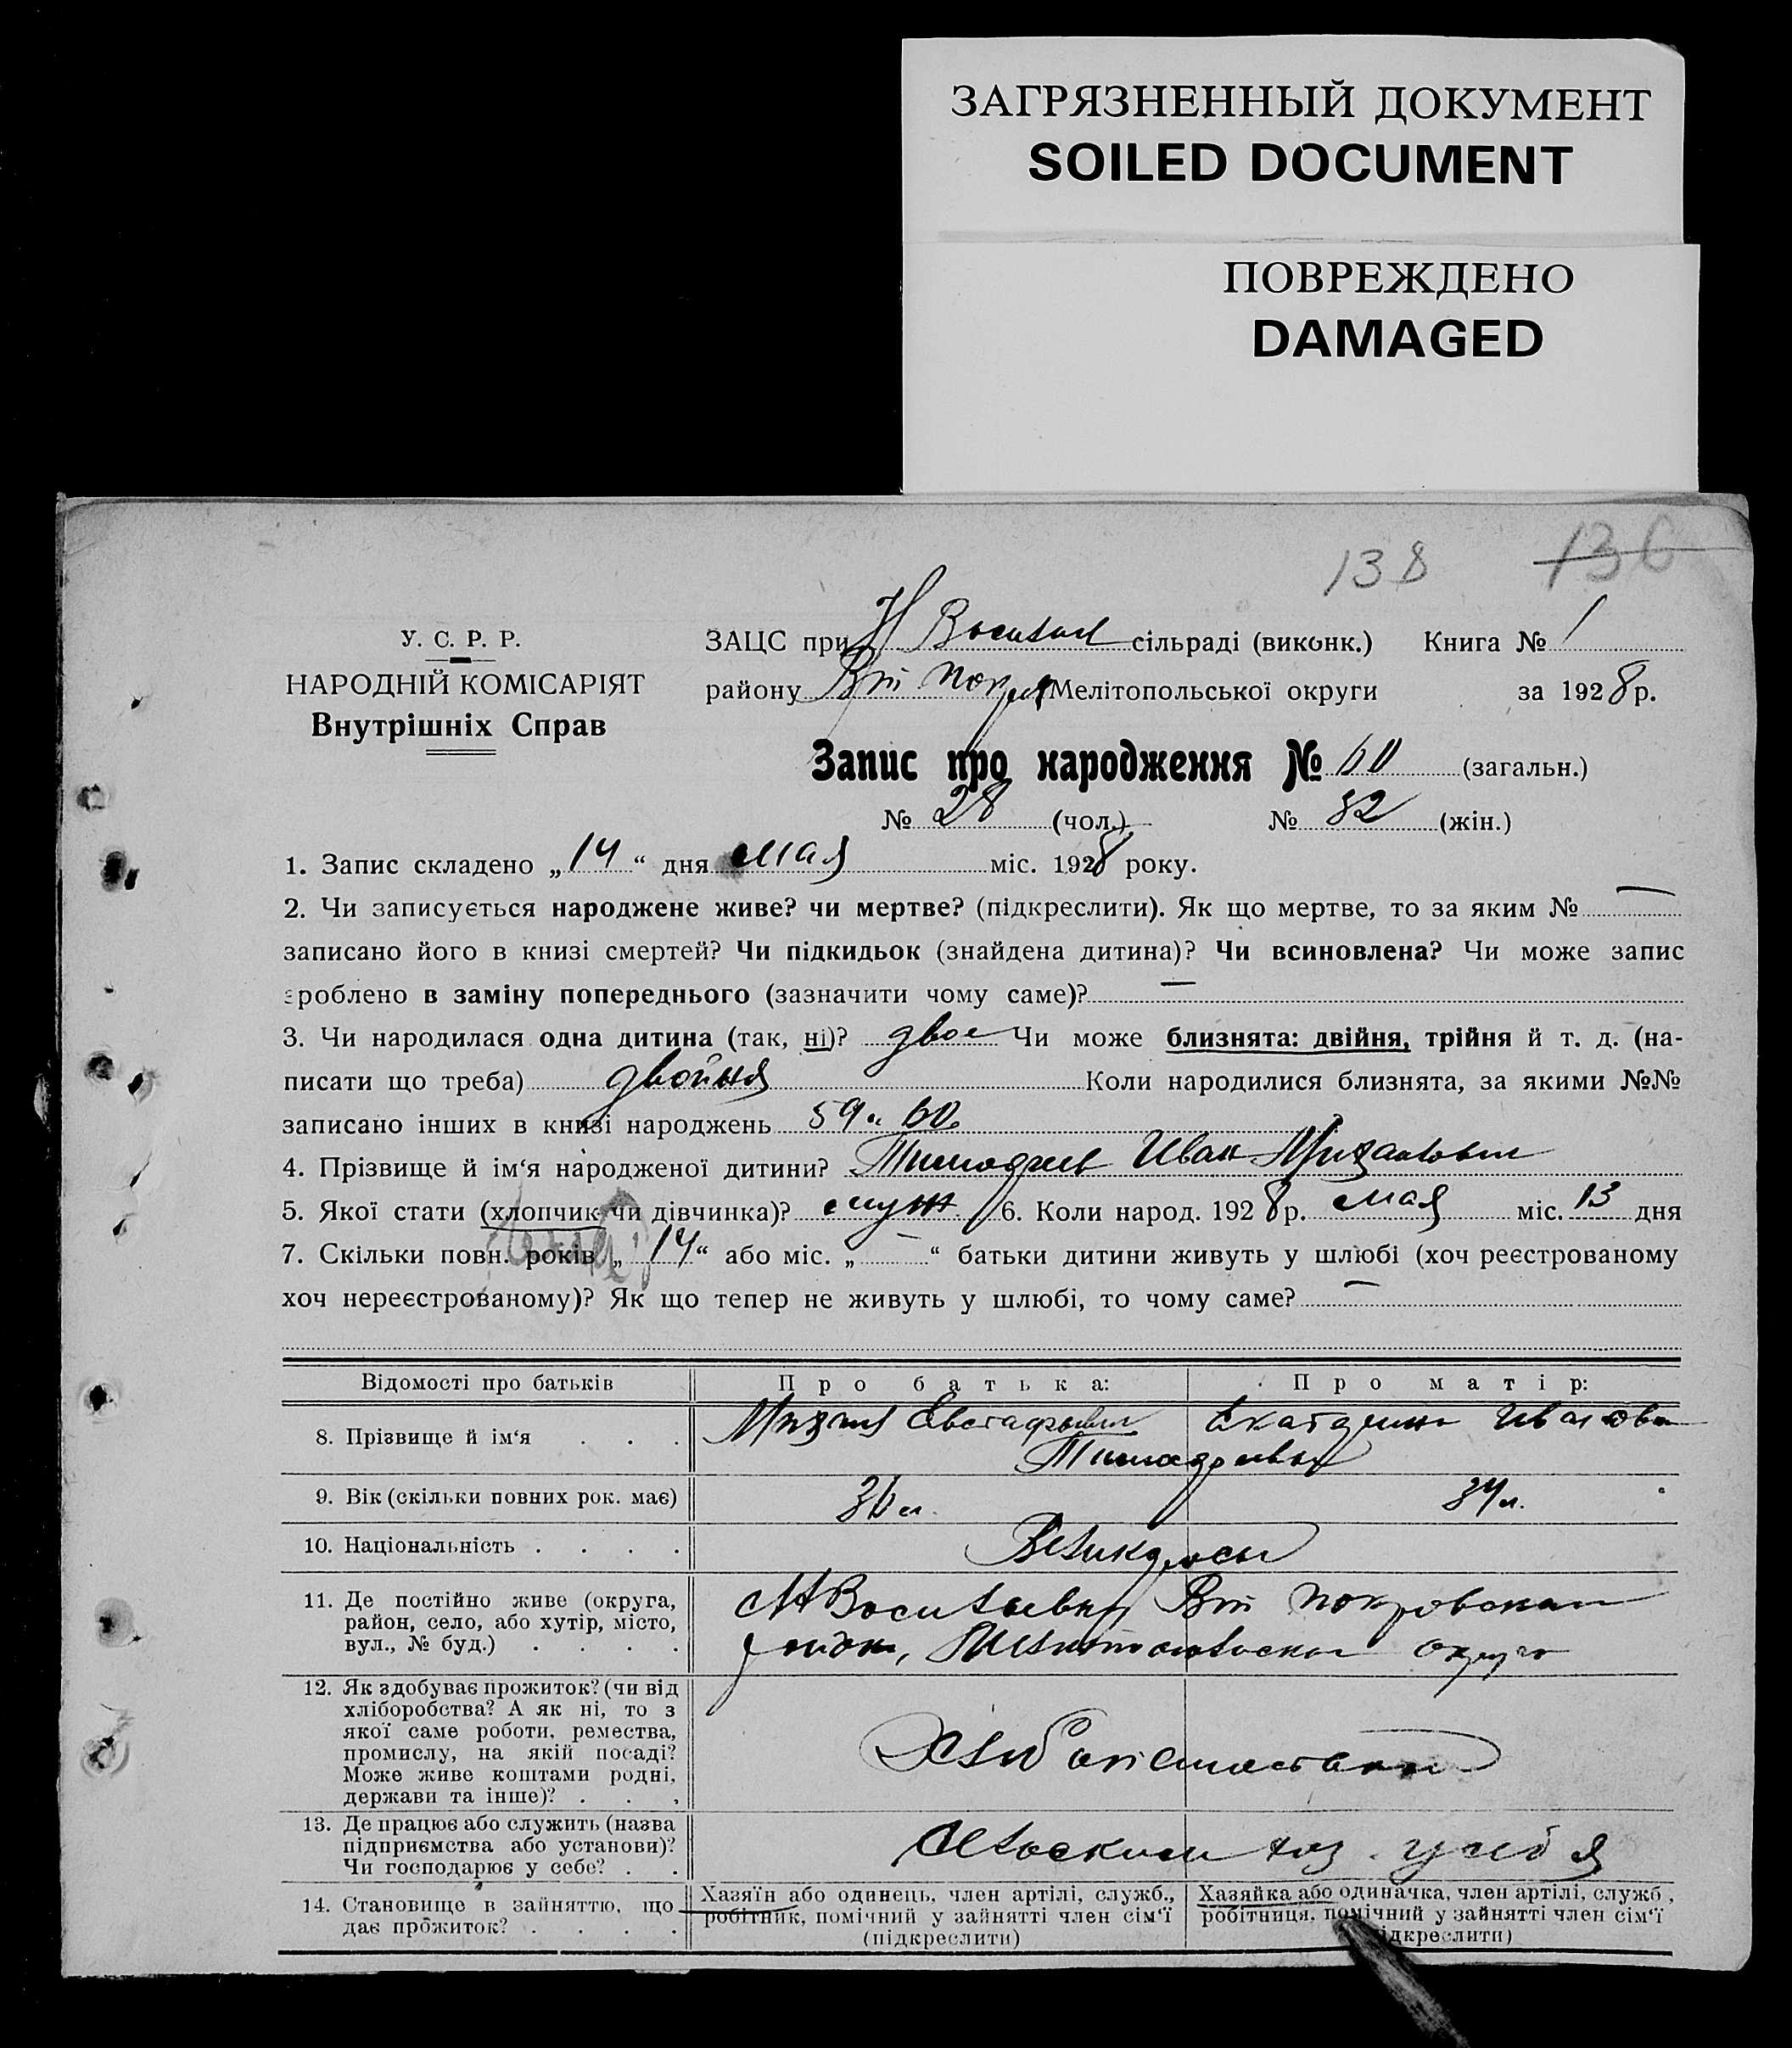 ЗАГРЯЗНЕННЫЙ ДОКУМЕНТ
SOILED DOCUMENT
ПОВРЕЖДЕНО
DAMAGED
138 136
У. С. Р. Р.
НАРОДНІЙ КОМІСАРІЯТ
Внутрішніх Справ
ЗАЦС при Н Васильев сільраді (виконк.) Книга № 1
району Вт Покр Мелітопольської округи за 1928 р.
Запис про народження № 60 (загальн.)
№ 28 (чол.) № 32 (жін.)
1. Запис складено „14“ дня мая міс. 1928 року.
2. Чи записується народжене живе? чи мертве? (підкреслити). Як що мертве, то за яким № —
записано його в книзі смертей? Чи підкидьок (знайдена дитина)? Чи всиновлена? Чи може запис
зроблено в заміну попереднього (зазначити чому саме)? —
3. Чи народилася одна дитина (так, ні)? двое Чи може близнята: двійня, трійня й т. д. (на-
писати що треба) двойня Коли народилися близнята, за якими №№
записано інших в книзі народжень 59 и 60
4. Прізвище й ім‘я народженої дитини? Тимофеев Иван Михайлович
5. Якої стати (хлопчик чи дівчинка)? муж 6. Коли народ. 1928 р. мая міс. 13 дня
7. Скільки повн. років „14“ або міс. „—“ батьки дитини живуть у шлюбі (хоч реєстрованому
хоч нереєстрованому)? Як що тепер не живуть у шлюбі, то чому саме? —
Відомості про батьків Про батька: Про матір:
8. Прізвище й ім‘я . . . Михаил Евстафьевич Екатерина Ивановна
Тимофеевы
9. Вік (скільки повних рок. має) 36 л. 34 л.
10. Національність . . . . Великоросы
11. Де постійно живе (округа, район, село, або хутір, місто, вул., № буд.) . . . . Н Васильевка Вт Покровского
района, Мелитопольского округа
12. Як здобуває прожиток? (чи від
хліборобства? А як ні, то з
якої саме роботи, ремества,
промислу, на якій посаді?
Може живе коштами родні,
держави та інше)? . . . Хлебопашеством
13. Де працює або служить (назва
підприємства або установи)?
Чи господарює у себе? . . Сельским хоз. у себя
14. Становище в зайняттю, що
дає прожиток? . . . .
Хазяїн або одинець, член артілі, служб.,
робітник, помічний у зайнятті член сім‘ї
(підкреслити)
Хазяйка або одиначка, член артілі, служб.,
робітниця, помічний у зайнятті член сім‘ї
підкреслити)